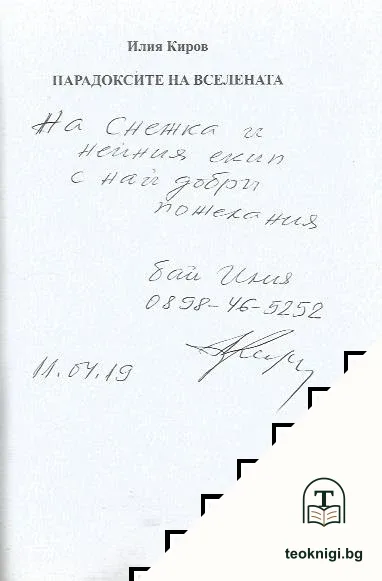 Илия Киров
ПАРАДОКСИТЕ НА ВСЕЛЕНАТА
На Снежка и
нейния екип
с най добри
пожелания
бай Илия
0898-46-5252
11.04.19
T
teoknigi.bg